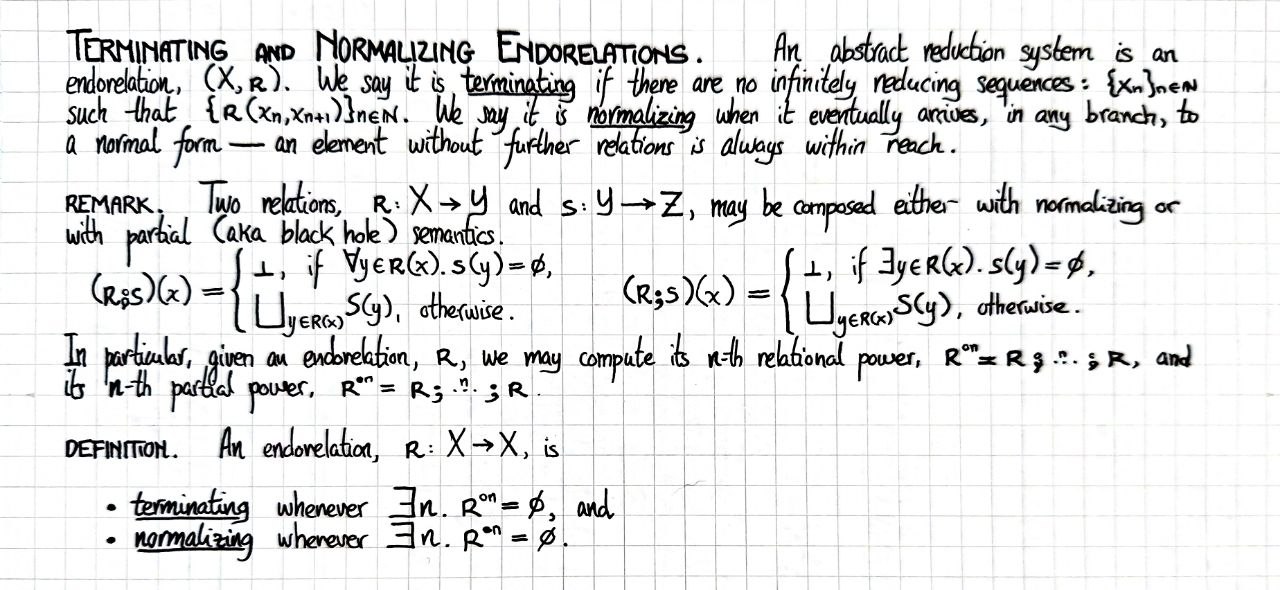 TERMINATING AND NORMALIZING ENDORELATIONS. An abstract reduction system is an
endorelation, (X,R). We say it is terminating if there are no infinitely reducing sequences: {xn}n∈ℕ
such that {R(xn,xn+1)}n∈ℕ. We say it is normalizing when it eventually arrives, in any branch, to
a normal form — an element without further relations is always within reach.
REMARK. Two relations, R: X → Y and S: Y → Z, may be composed either with normalizing or
with partial (aka black hole) semantics.
(R⨾S)(x) = { ⊥, if ∀y∈R(x). S(y) = ∅,
⨆y∈R(x) S(y), otherwise.
(R;S)(x) = { ⊥, if ∃y∈R(x). S(y) = ∅,
⨆y∈R(x) S(y), otherwise.
In particular, given an endorelation, R, we may compute its n-th relational power, R°ⁿ = R ⨾ .ⁿ. ⨾ R, and
its n-th partial power, R•ⁿ = R ; .ⁿ. ; R.
DEFINITION. An endorelation, R: X → X, is
• terminating whenever ∃n. R°ⁿ = ∅, and
• normalizing whenever ∃n. R•ⁿ = ∅.